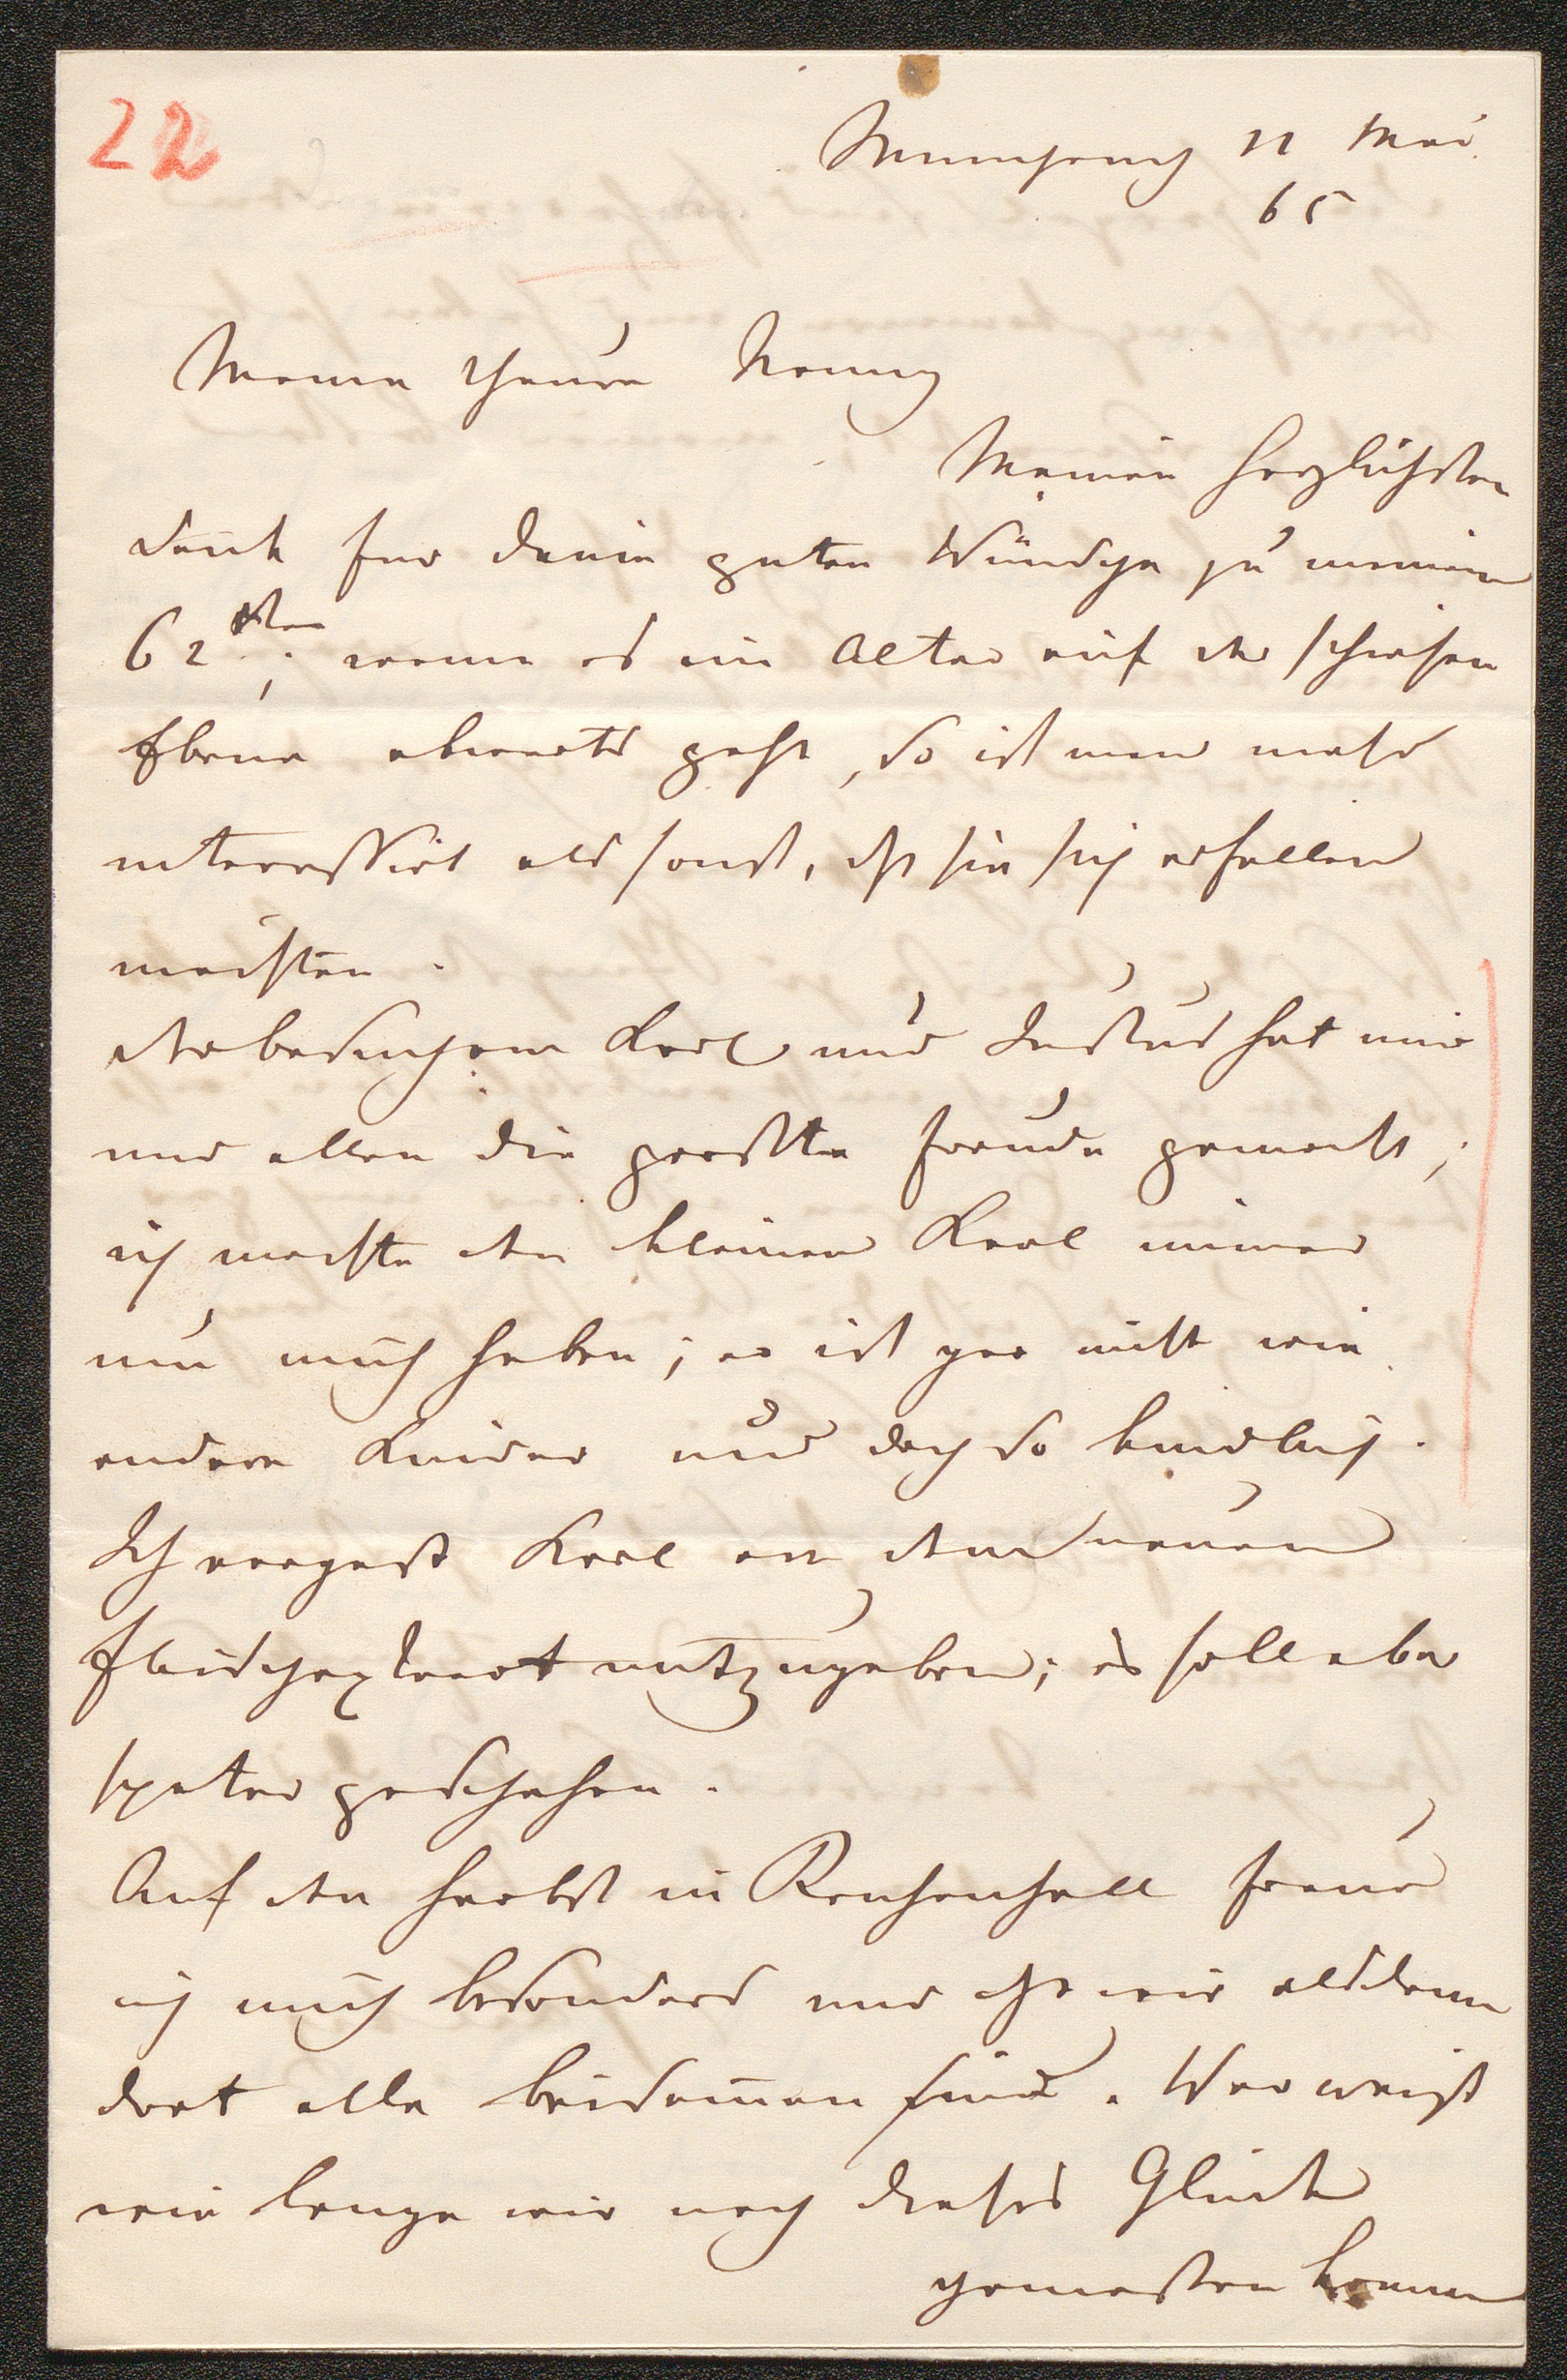 22
Muenchen 11 Mai
65
Meine theure Nanny
Meinen herzlichsten
Dank fur deine guten Wünsche zu meinem
62sten; wenn es im Alter auf der schiefen
Ebene abwarts geht, so ist man mehr
interessirt als sonst, dass sie sich erfullen
mochten.
Der besuch von Karl und Justus hat mir
und allen die grosste Freude gemacht;
ich mochte den kleinen Karl immer
um mich haben; er ist gar nicht wie
andere Kinder und doch so kindlich.
Ich vergass Karl von dem neuen
Fleischextract mitzugeben; es soll aber
spater geschehen.
Auf den Herbst in Reichenhall freue
ich mich besonders und dass wir alsdann
dort alle beisamen sind. Wer weiss
wie lange wir noch dieses Gluck
geniessen konnen